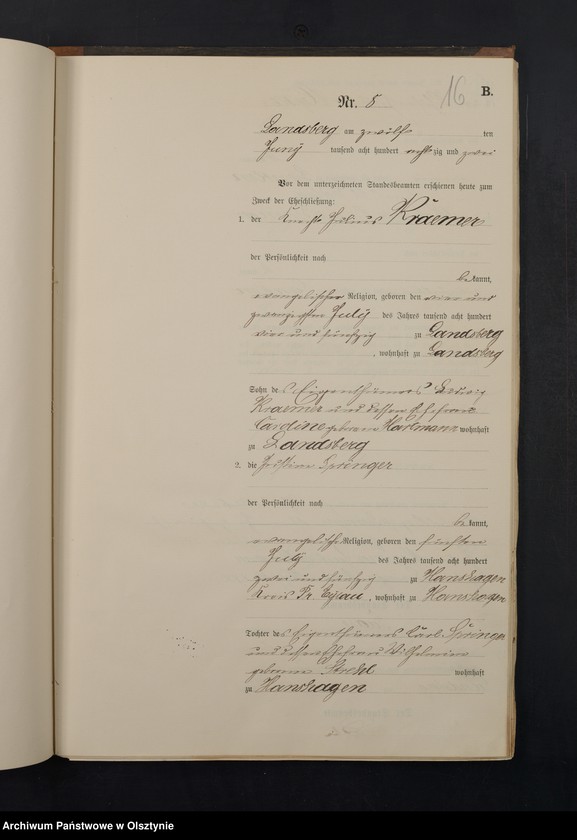 16
B.
Nr. 8
Landsberg am zwölf ten
Juny tausend acht hundert achtzig und zwei
Vor dem unterzeichneten Standesbeamten erschienen heute zum
Zweck der Eheschließung:
1. der Knecht Julius Kraemer
der Persönlichkeit nach
bekannt,
evangelischer Religion, geboren den vier und
zwanzigsten July des Jahres tausend acht hundert
vier und fünfzig zu Landsberg
, wohnhaft zu Landsberg
Sohn des Eigenthümers Ludwig
Kraemer und dessen Ehefrau
Caroline geborene Hartmann wohnhaft
zu Landsberg
2. die Justine Springer
der Persönlichkeit nach
bekannt,
evangelische Religion, geboren den fünften
July des Jahres tausend acht hundert
zwei und fünfzig zu Hanshagen
Kreis Pr. Eylau, wohnhaft zu Hanshagen
Tochter des Eigenthümers Carl Springer
und dessen Ehefrau Wilhelmine
geborene wohnhaft
zu Hanshagen
Archiwum Państwowe w Olsztynie